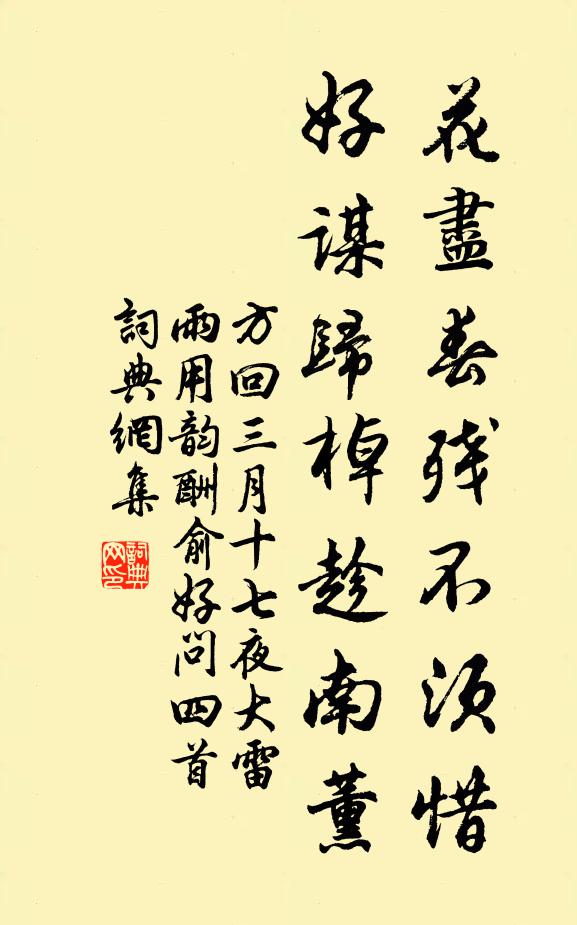 花盡春残不須惜
好謀歸棹趁南薰
方回三月十七夜大雷
雨用韵酬俞好問四首
詞典網集
詞典
网印